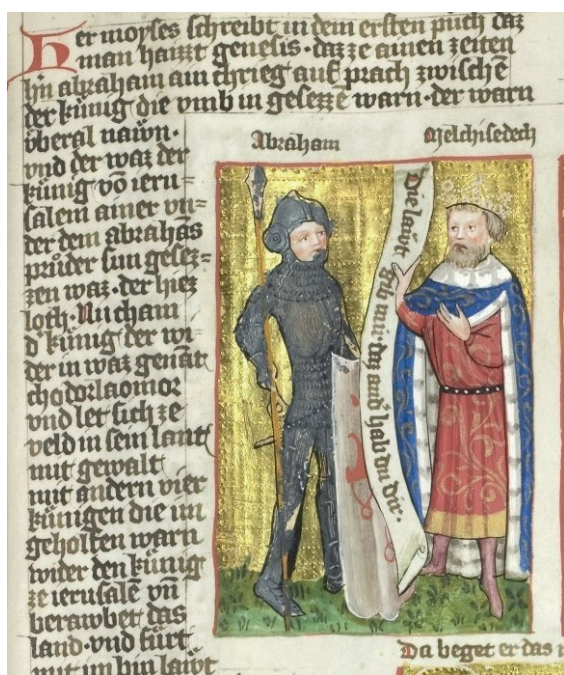 Her moyses schreibt in dem ersten puch daz
man haizzt genesis · daz ze ainen zeiten
hin abraham ain chrieg auf prach zwischē
der künig die vmb in gesezzē warn · der warn
vberal naẅn ·
vnd der waz der
künig vō ieru=
salem ainer vn=
der dem abrahās
prüder sun gesez=
zen waz · der hiez
loth · Nu cham
d künig der wi=
der in waz genāt
chodorlaomor
vnd let sich ze
veld in sein lant
mit gewalt
mit andern vier
künigen die im
geholfen warn
wider den künig
ze ierusalē vn̄
berawbet das
land · vnd fürt
mit im hin laẅt
Abraham
Melchisedech
Die laẅt gib mir · daz and hab du dir ·
Da beget er das